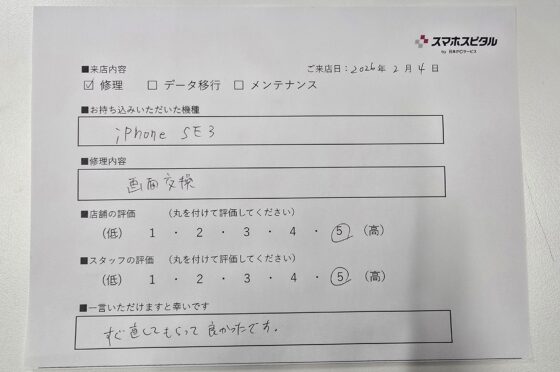 スマホスピタル
by 日本PCサービス
■来店内容
ご来店日：2026年 2月 4日
☑ 修理 □ データ移行 □ メンテナンス
■お持ち込みいただいた機種
iPhone SE3
■修理内容
画面交換
■店舗の評価 （丸を付けて評価してください）
（低） 1 ・ 2 ・ 3 ・ 4 ・ 5 （高）
■スタッフの評価 （丸を付けて評価してください）
（低） 1 ・ 2 ・ 3 ・ 4 ・ 5 （高）
■一言いただけますと幸いです
すぐ直してもらって良かったです。